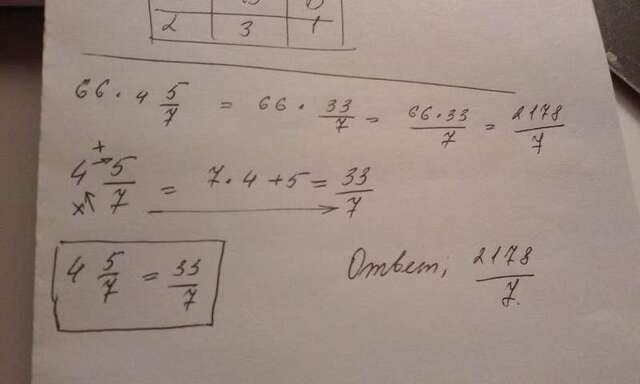 2 3 1
66 · 4 5/7 = 66 · 33/7 = 66·33/7 = 2178/7
4 + 5/7 x = 7·4+5 = 33/7
4 5/7 = 33/7
Ответ; 2178/7.